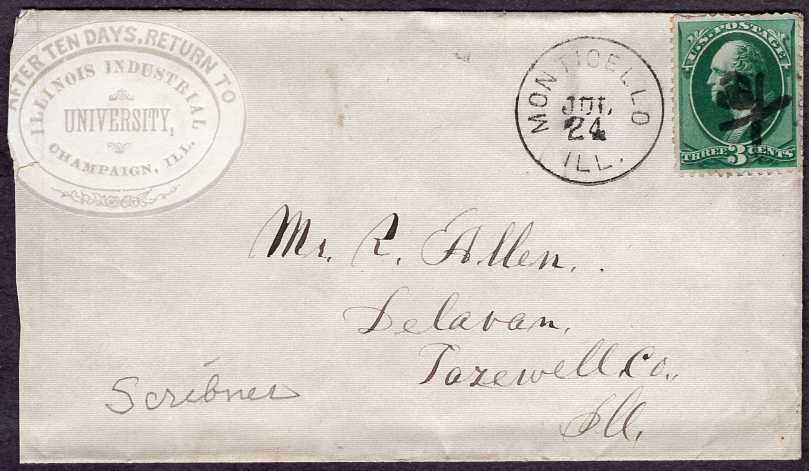 AFTER TEN DAYS, RETURN TO
ILLINOIS INDUSTRIAL
UNIVERSITY,
CHAMPAIGN, ILL.
MONTICELLO
JUL
24
ILL.
U.S. POSTAGE
THREE 3 CENTS
Mr. R. Allen.
Delavan,
Tazewell Co.,
Ill.
Scribner